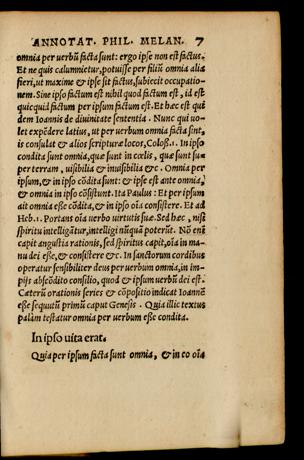 ANNOTAT. PHIL. MELAN. 7
omnia per uerbũ facta sunt: ergo ipse non est factus.
Et ne quis calumnietur, potuisse per filiũ omnia alia
fieri, ut maxime & ipse sit factus, subiecit occupatio-
nem. Sine ipso factum est nihil quod factum est, id est
quicquid factum per ipsum factum est. Et hæc est qui
dem Ioannis de diuinitate sententia. Nunc qui uo-
let expẽdere latius, ut per uerbum omnia facta sint,
is consulat & alios scripturæ locos, Coloss.1. In ipso
condita sunt omnia, quæ sunt in cœlis, quæ sunt su-
per terram, uisibilia & inuisibilia &c. Omnia per
ipsum, & in ipso cõdita sunt: & ipse est ante omnia,
& omnia in ipso cõsistunt. Ita Paulus: Et per ipsum
ait omnia esse cõdita, & in ipso oĩa consistere. Et ad
Heb.1. Portans oĩa uerbo uirtutis suæ. Sed hæc, nisi
spiritu intelligãtur, intelligi nũquã poterũt. Nõ enĩ
capit angustia rationis, sed spiritus capit, oĩa in ma-
nu dei esse, & consistere &c. In sanctorum cordibus
operatur sensibiliter deus per uerbum omnia, in im-
pijs abscõdito consilio, quod & ipsum uerbũ dei est.
Cæterũ orationis series & cõpositio indicat Ioannẽ
esse sequutũ primũ caput Genesis. Quia illic textus
palàm testatur omnia per uerbum esse condita.
In ipso uita erat.
Quia per ipsum facta sunt omnia, & in eo oĩa